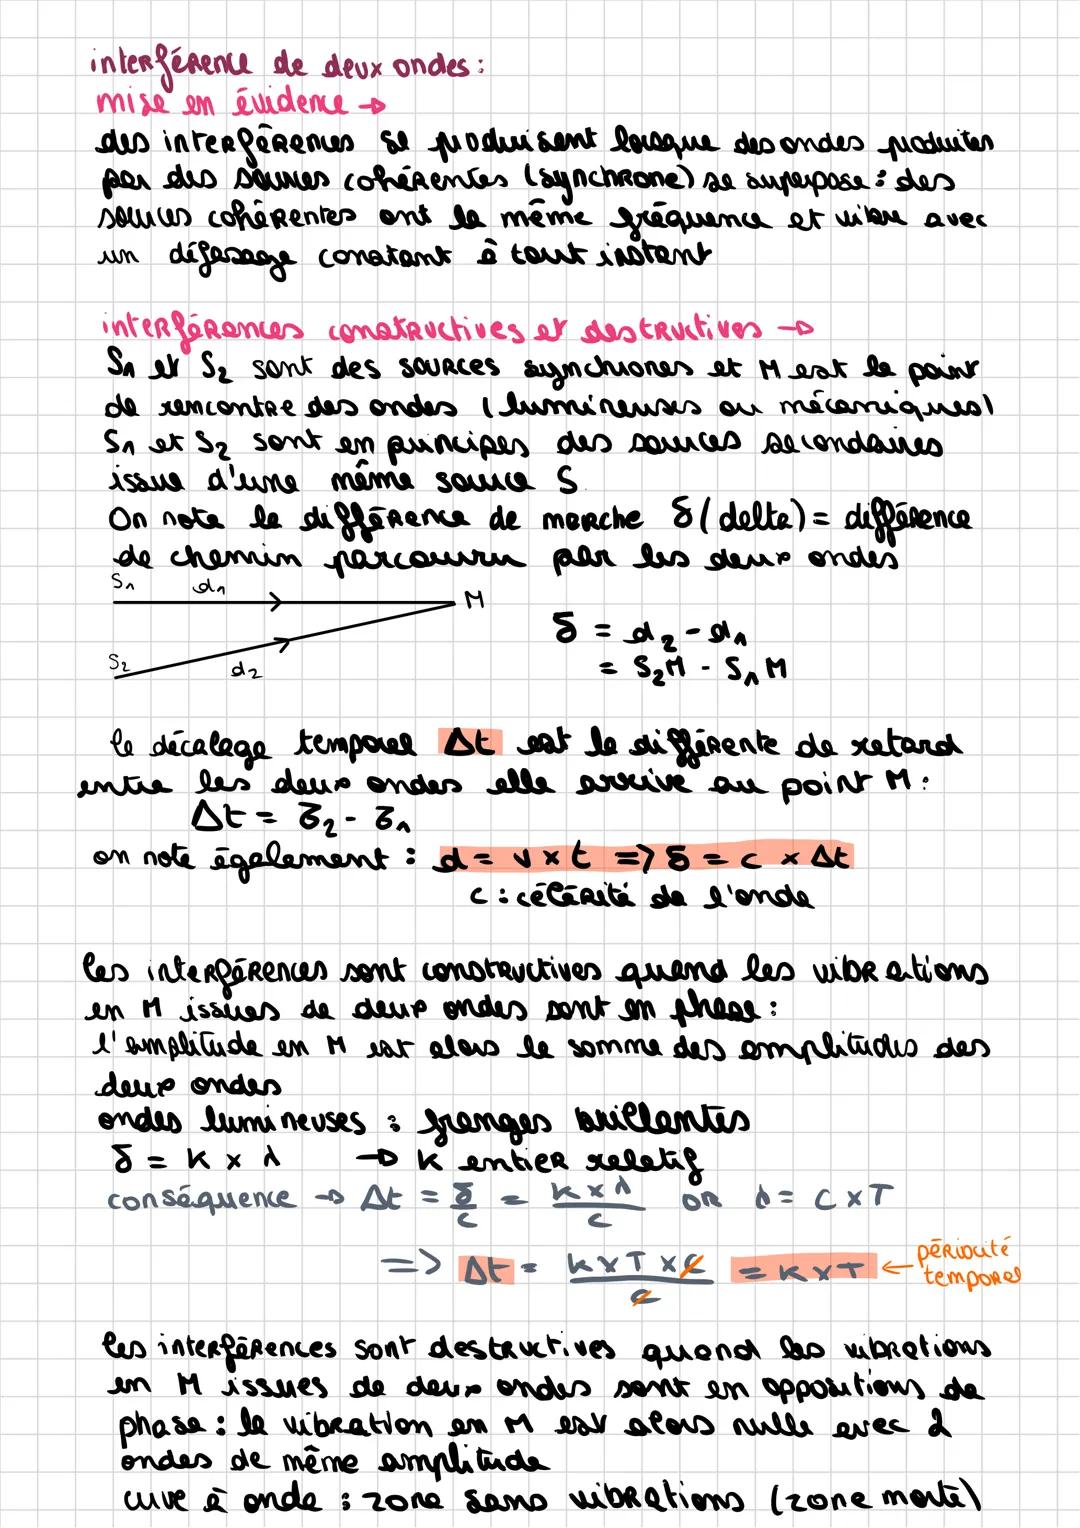 interférence de deux ondes :
mise en évidence →
des interférences se produisent lorsque des ondes produites
par des sources cohérentes (synchrone) se superpose : des
sources cohérentes ont la même fréquence et vibre avec
un déphasage constant à tout instant
interférences constructives et destructives →
S₁ et S₂ sont des sources synchrones et M est le point
de rencontre des ondes (lumineuses ou mécaniques)
S₁ et S₂ sont en principes des sources secondaires
issue d'une même source S.
On note la différence de marche δ (delta) = différence
de chemin parcouru par les deux ondes
S₁ d₁ M
δ = d₂ - d₁
S₂ d₂
= S₂M - S₁M
le décalage temporel Δt est la différente de retard
entre les deux ondes elle arrive au point M :
Δt = τ₂ - τ₁
on note également : d = v × t => δ = c × Δt
c : célérité de l'onde
les interférences sont constructives quand les vibrations
en M issues de deux ondes sont en phase :
l'amplitude en M est alors la somme des amplitudes des
deux ondes
ondes lumineuses : franges brillantes
δ = K × λ → K entier relatif
conséquence → Δt = δ/c = K×λ/c OR λ = C×T
=> Δt = K×T×c/c = K×T ← périocité
temporel
les interférences sont destructives quand les vibrations
en M issues de deux ondes sont en oppositions de
phase : la vibration en M est alors nulle avec 2
ondes de même amplitude
cuve à onde : zone sans vibrations (zone morte)